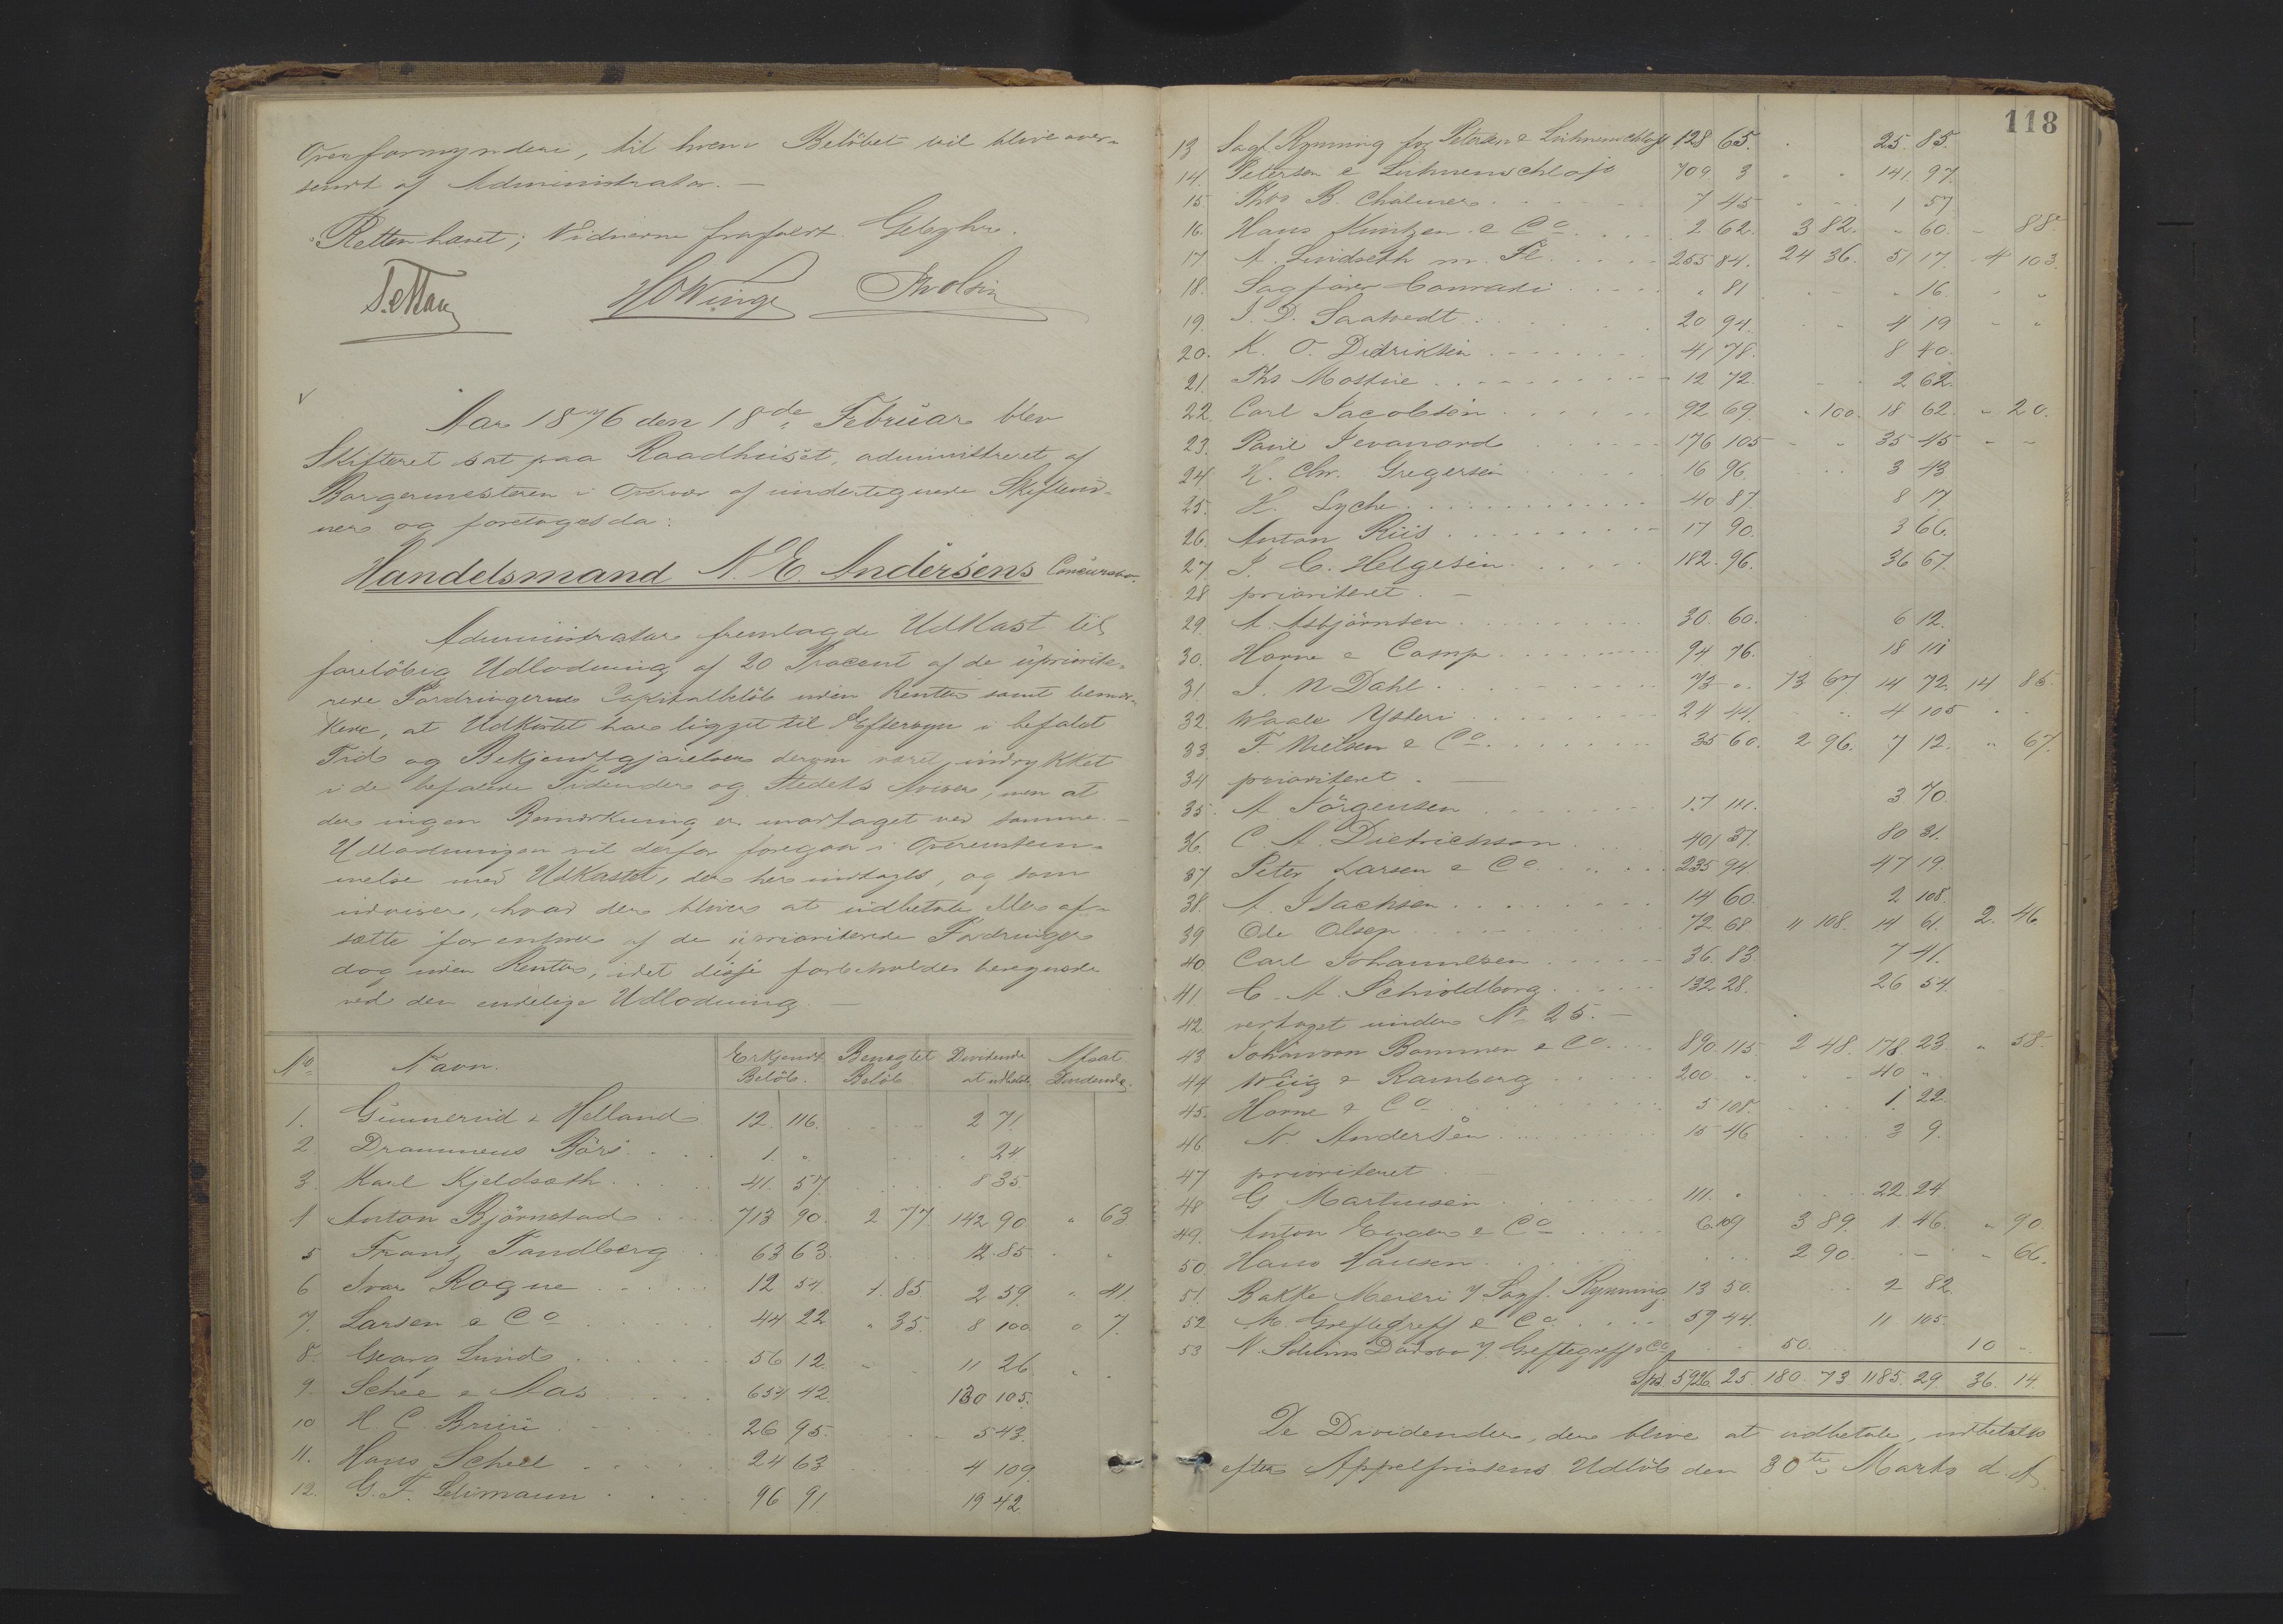 Overformynderi, til hvem Beløbet vil blive over-
sendt af Administrator. —
Retten hævet; Vidnerne frafaldt
HOWinge
Aar 1876 den 18de Februar blev
Skifteret sat paa Raadhuset, administreret af
Borgermesteren i Overvær af undertegnede Skiftevid-
ner og foretoges da:
Handelsmand N. E. Andersens Concursbo.
Administrator fremlagde Udkast til
foreløbig Udlodning af 20 Procent af de upriorite-
rede Fordringernes Capitalbeløb uden Renter samt bemær-
kede, at Udkastet har ligget til Eftersyn i befalet
Tid og Bekjendtgjørelser derom været indrykket
i de befalede Tidender og Stedets Aviser, men at
der ingen Bemærkning er modtaget ved samme. —
Udlodningen vil derfor foregaa i Overenstem-
melse med Udkastet, der her indtages, og som
udviser, hvad der bliver at udbetale eller af-
sætte for enhver af de uprioriterede Fordringer
dog uden Renter, idet disse forbeholdes beregnede
ved den endelige Udlodning. —
No. Navn. Erkjendt Beløb. Benægtet Beløb Dividende at udbetale Afsat Dividende.
1. Gunnerud & Helland 12. 116. 2 71.
2 Drammens Børs 1. " 24
3. Karl Kjeldsæth 41. 57 8 35
4 Anton Bjørnstad 713 90. 2 77 142 90 " 63
5 Frantz Tandberg 63 63. 12. 85
6 Ivar Rogne 12 54 1. 85. 2 59. " 41.
7. Larsen & Co 44 22 " 35. 8 100 " 7.
8. Georg Lund 56 12. 11 26
9. Schee & Aas 654 42 130 105.
10 H. C. Bruu 26 95. 5 43.
11. Hans Schee 24 63 4 109
12. G. F. 96 91 19 42
118
13 Sagf. Rynning for Petersen & 128 65. 25. 85.
14. Petersen & 709 3 141. 97.
15 Ths B. Chalmers 7 45 1 57
16. Hans Kintzen & Co 2 62. 3 82. " 60. " 88.
17 A. Lindseth m. Fl. 255 84. 24 36. 51 17. 4 103.
18. Sagfører Conradi " 81 " 16.
19. I. D. Saatvedt 20 94. 4 19
20. K. O. Didriksen 41 78. 8 40.
21. Ths Mostue 12 72. 2 62.
22. Carl Jacobsen 92 69. " 100. 18 62. " 20.
23. Paul 176 105 35 45
24. H. Chr. Gregersen 16 96. 3 43
25. H. Lyche 40 87. 8 17.
26. Anton Riis 17 90. 3 66.
27. I. C. Helgesen 182. 96. 36 67.
28 prioriteret. —
29. A. Asbjørnsen 30. 60. 6 12.
30. Horne & Comp 94 76. 18 111
31. I. N Dahl 73 ". 73 67 14 72. 14 85.
32. Waale Ysteri 24 44. 4 105
33. F. Nielsen & Co 35 60. 2 96. 7 12. " 67.
34 prioriteret. —
35. A. Jørgensen 17 111. 3 70.
36. C. A. Dietrichson 401 37. 80 31.
37 Peter Larsen & Co 235 94 47 19
38. A. Isachsen 14 60. 2 108.
39 Ole Olsen 72 68 " 108. 14 61. 2. 46
40. Carl Johannesen 36. 83. 7 41.
41. C. A. Schioldborg 132 28. 26 54.
42. vertaget under No 25. —
43 Johanson Bommen & Co 890. 115 2 48. 178 23 " 58.
44. Wiig & Ramberg 200 " 40 "
45. Horne & Co 5 108. 1. 22.
46 N. Andersen 15 46 3 9.
47 prioriteret. —
48 G Martinsen 111. " 22 24
49. Anton Enger & Co 6. 109 3 89. 1. 46. " 90.
50. Hans Hansen 2 90. " 66.
51. Bakke Meieri v/ Sagf. Rynning 13 50. 2 82.
52 M. Greftegreff & Co 59 44. 11 105.
53 Dødsbo v/ Greftegreff & Co 50. 10 "
Spd. 5926. 25. 180. 73. 1185. 29. 36. 14.
De Dividender, der blive at udbetale, udbetales
efter Appelfristens Udløb den 30te Marts d. A.